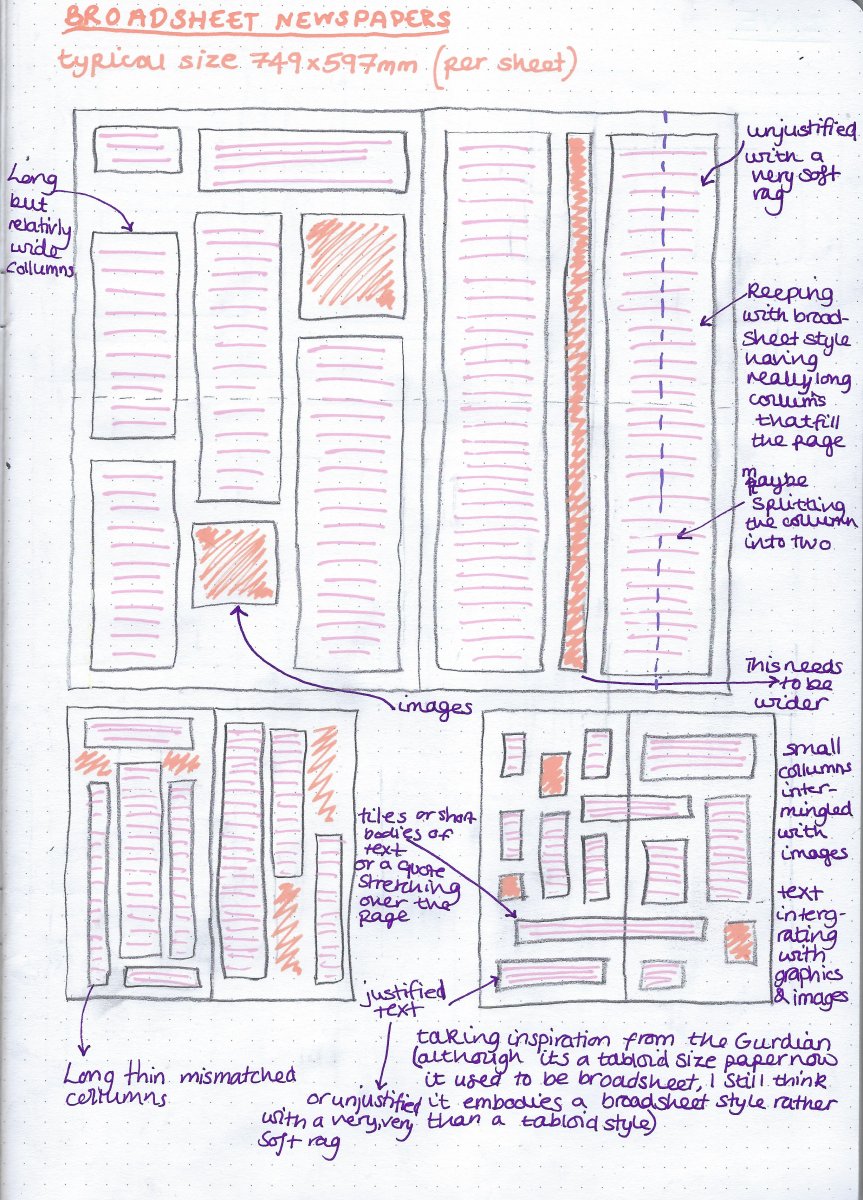 BROADSHEET NEWSPAPERS
typical size 749x597mm (per sheet)
Long
but
relativly
wide
collumns
unjustified
with a
very soft
rag
Keeping
with broad-
sheet style
having
really long
collums
that fill
the page
maybe
splitting
the collumn
into two
This needs
to be
wider
images
tiles or short
bodies of
text
or a quote
stretching
over the
page
small
columns
inter-
mingled
with
images
text
interg-
rating
with
graphics
& images
justified
text
Long thin mismatched
collumns
or unjustified
with a very, very
soft rag
taking inspiration from the Gurdian
(although its a tabloid size paper now
it used to be broadsheet, I still think
it embodies a broadsheet style rather
than a tabloid style)